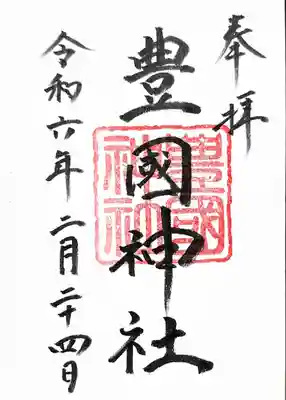 奉拝
豊國神社
豊國神社
令和六年二月二十四日